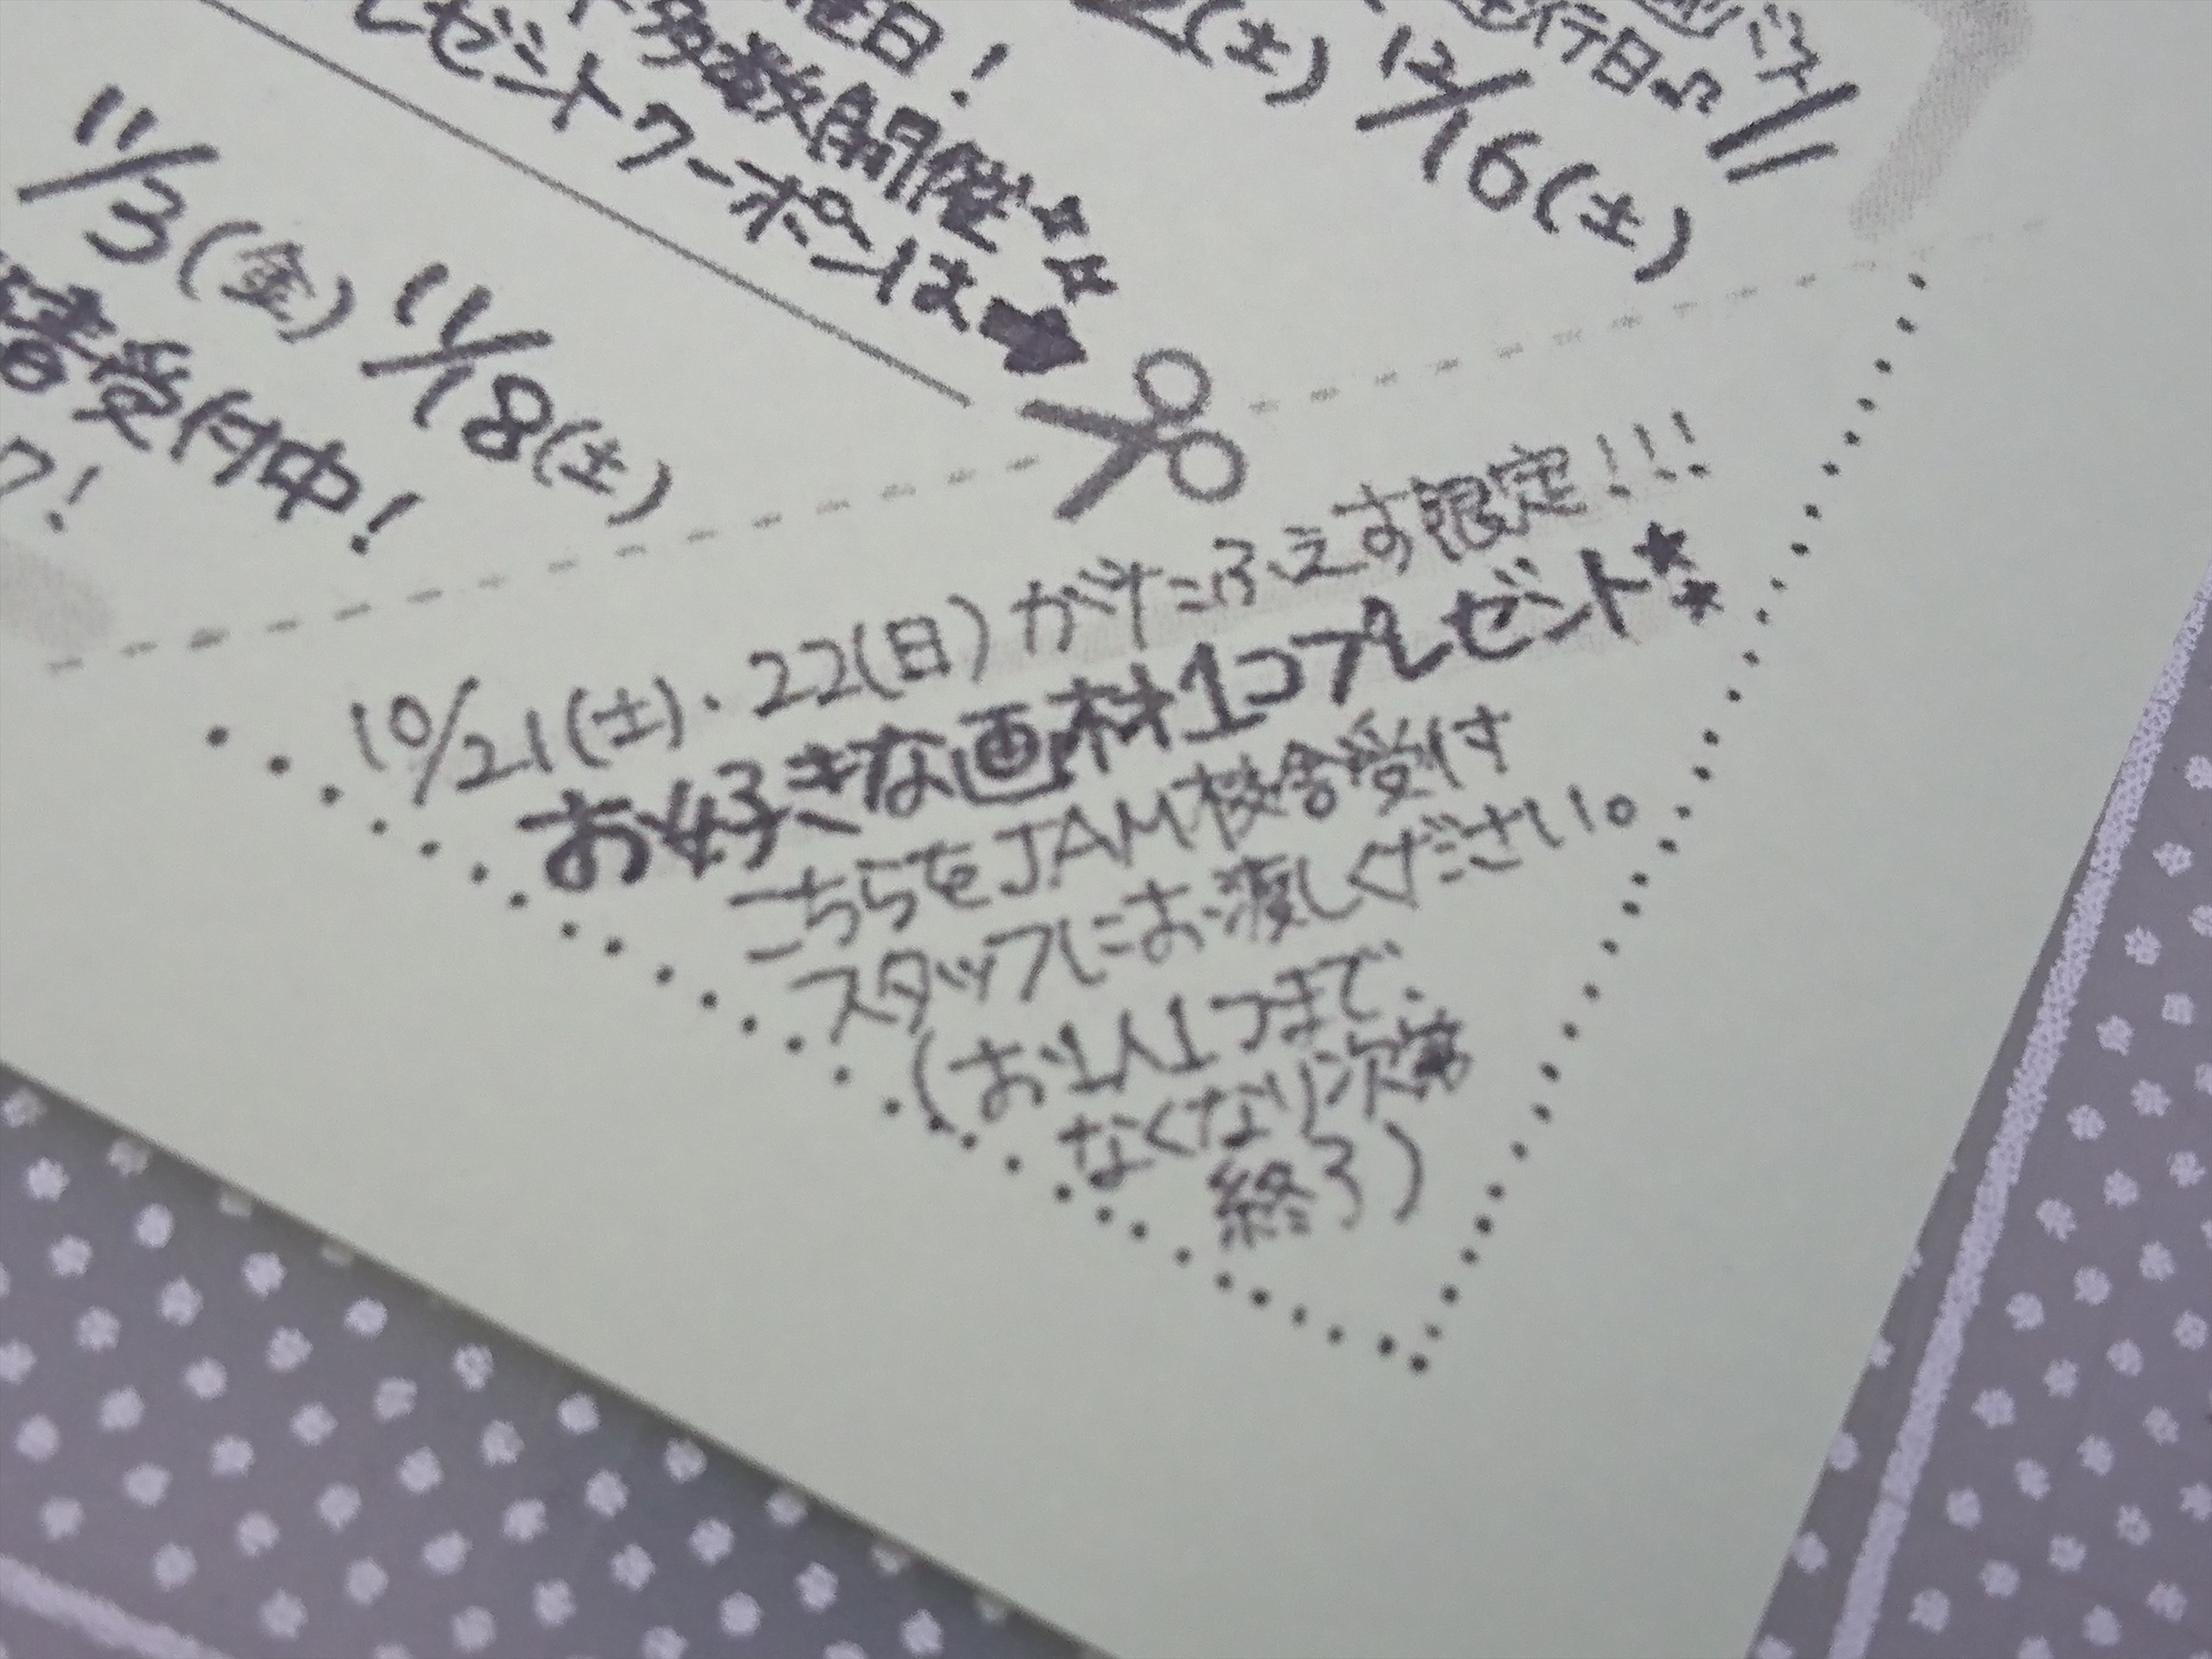 行日♫
12/16(土)
2(土)
日!
多数開催
レゼントクーポンは➡
11/3(金) 11/18(土)
受付中!
10/21(土)・22(日)がたふぇす限定!!!
お好きな画材1コプレゼント★★
こちらをJAM校舎受付
スタッフにお渡しください。
(お1人1つまで、
なくなり次第
終了)